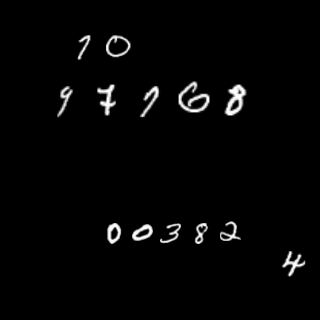 10
97168
00382
4